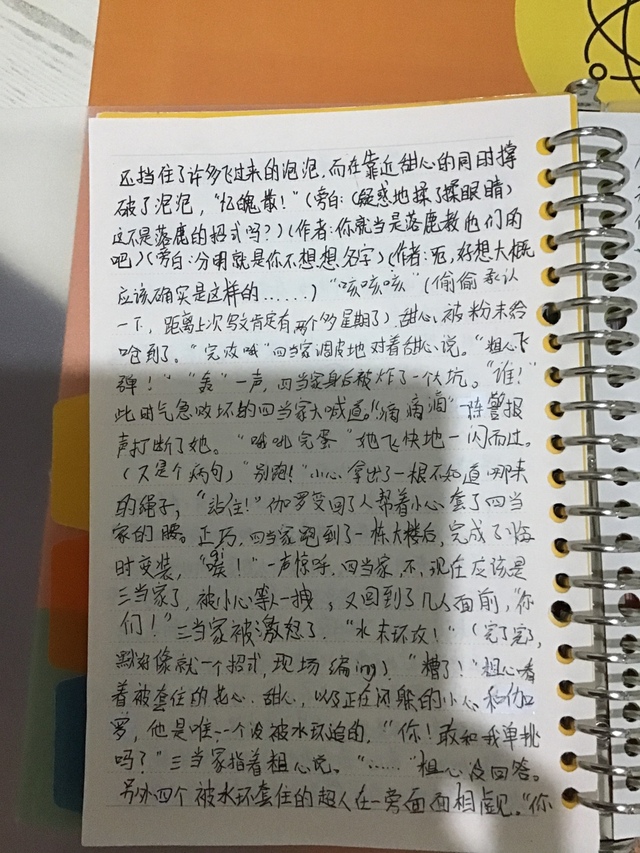 还挡住了许多飞过来的泡泡，而在靠近甜心的同时撑
破了泡泡，“忆魄散！”（旁白：（疑惑地揉了揉眼睛）
这不是落鹿的招式吗？）（作者：你就当是落鹿教他们的
吧）（旁白：分明就是你不想想名字）（作者：死，好想大概
应该确实是这样的……）“咳咳咳”（偷偷承认
一下，距离上次写文肯定有两个多星期了）甜心被粉末给
呛到了。“完攻哦”四当家调皮地对着甜心说。“粗心飞
弹！”“轰”一声，四当家身后被炸了一个大坑。“谁！”
此时气急败坏的四当家大喊道。“滴滴滴”一阵警报
声打断了她。“哦吼完蛋”她飞快地一闪而过。
（又是个病句）“别跑！”小心拿出了一根不知道哪来
的绳子，“站住！”伽罗变回了人帮着小心套了四当
家的腰。正巧，四当家跑到了一栋大楼后，完成了临
时变装，“唉！”一声惊呼，四当家，不，现在应该是
三当家了，被小心等人一拽，又回到了几人面前，“你
们！”三当家被激怒了，“水末环攻！”（完了完了，
默好像就一个招式，现场编ing）“糟了！”粗心看
着被套住的花心、甜心，以及正在闪躲的小心和伽
罗，他是唯一个没被水环追的，“你！敢和我单挑
吗？”三当家指着粗心说。“……”粗心没回答。
另外四个被水环套住的超人在一旁面面相虚见。“你